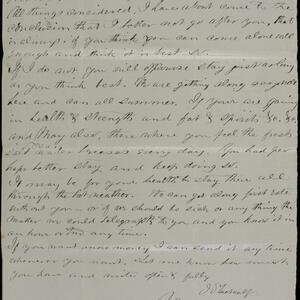 All things considered, I have about come to the
conclusion that I better not go after you, that
is always if you think you can come alone all
enough and think it is best so.
If I do not you will otherwise stay just as long
as you think best. We are getting along
here and can all summer. If you are gaining
in health & Strength and fat & Spirits &c &c,
and May also, there where you feel the fresh
Salt water breezes every day. You had per
haps better stay and keep doing so.
It may be for your health to stay there all
through the hot weather. We can get along first rate
without you — or if we should be sick or any thing the
matter we could telegraph to you and you know it in
an hour or two any time.
If you want more money I can send it any time
whenever you want. Let me know how much
you have and write often & fully.